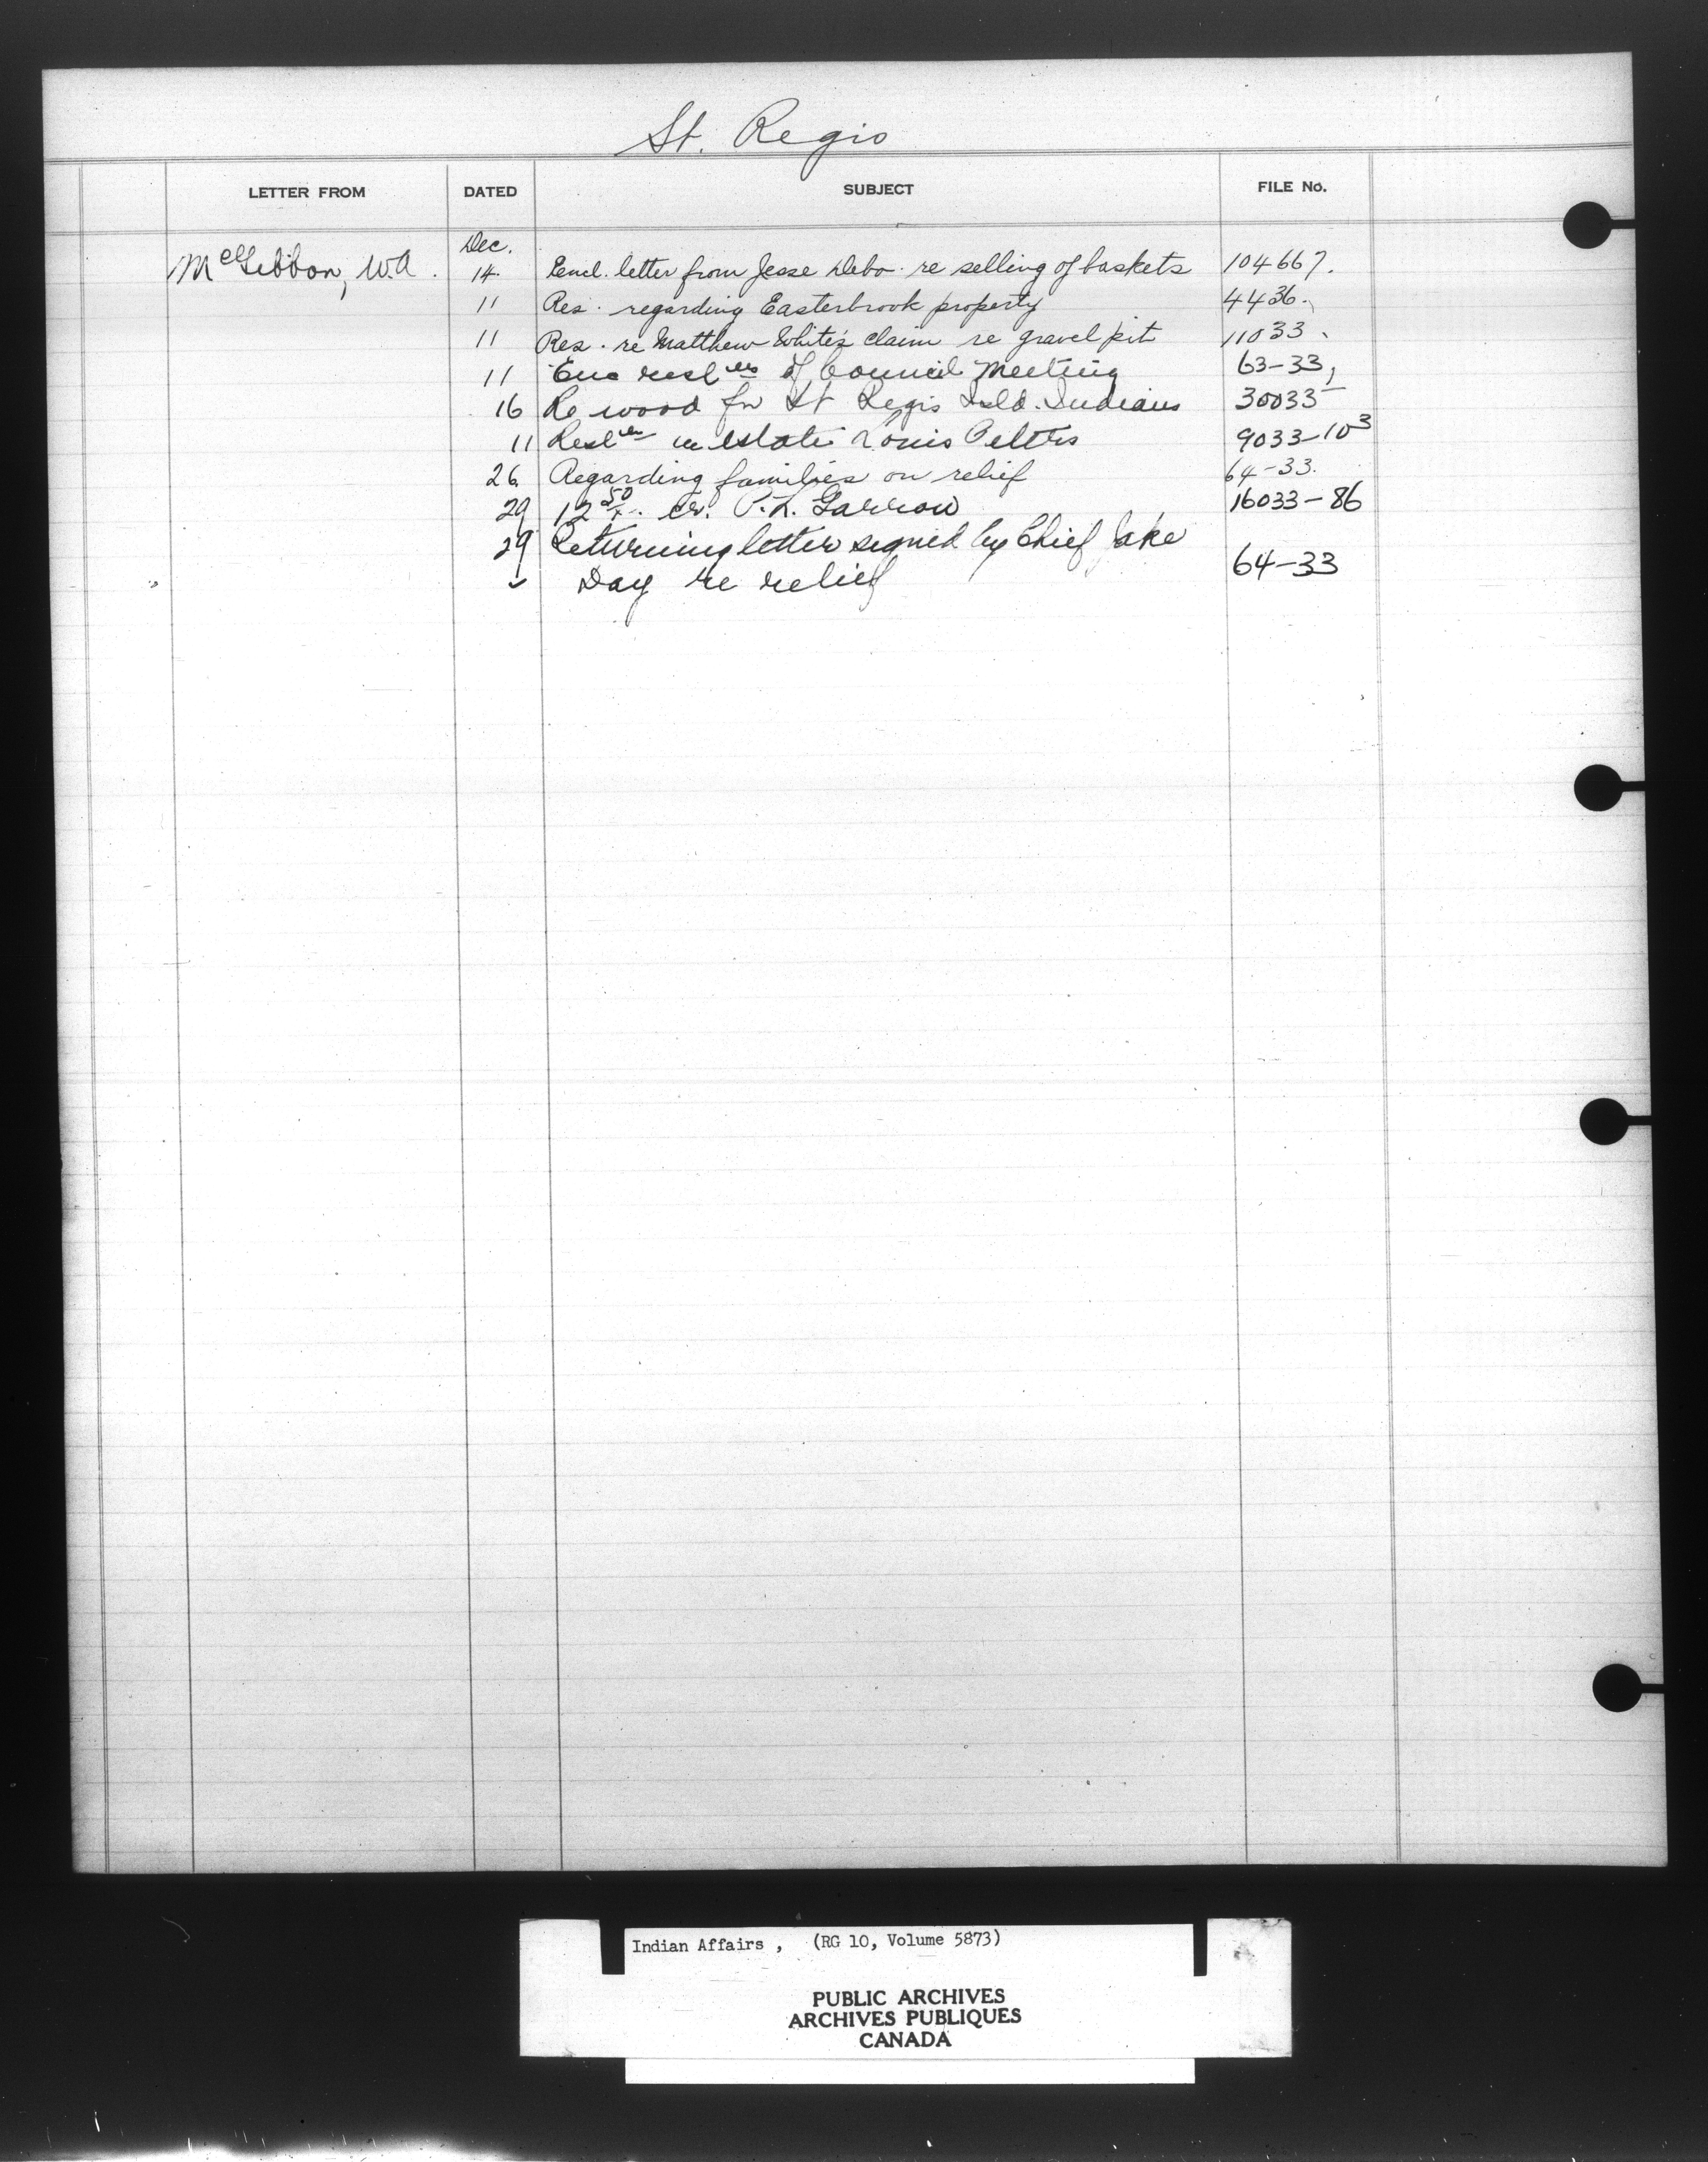 St. Regis
LETTER FROM DATED SUBJECT FILE No.
Dec.
McGibbon, W.A. 14. Encl. letter from Jesse Debo re selling of baskets 104667.
11 Res. regarding Easterbrook property 4436.
11 Res. re Matthew White's claim re gravel pit 11033.
11 Enc resl'ns of Council Meeting 63-33,
16 Re wood for St Regis Isld. Indians 30033
11 Resl'n re estate Louis Peters 9033-103
26 Regarding families on relief 64-33.
29 12 50/x. cr. P.L. Garrow 16033-86
29 Returning letter signed by Chief Jake
Day re relief 64-33
Indian Affairs , (RG 10, Volume 5873)
PUBLIC ARCHIVES
ARCHIVES PUBLIQUES
CANADA